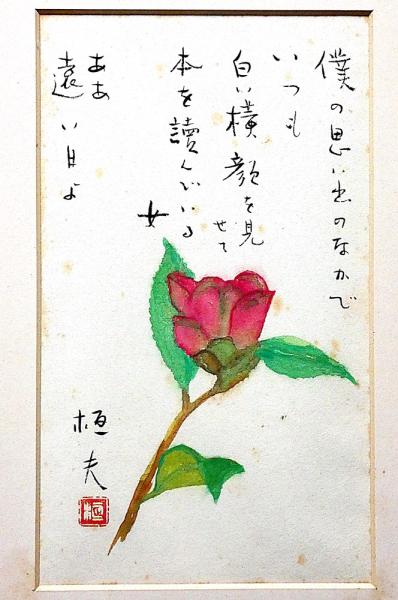 僕の思い出のなかで
いつも
白い横顔を見
せて
本を讀んでいる
女
ああ
遠い日よ
桓夫
桓